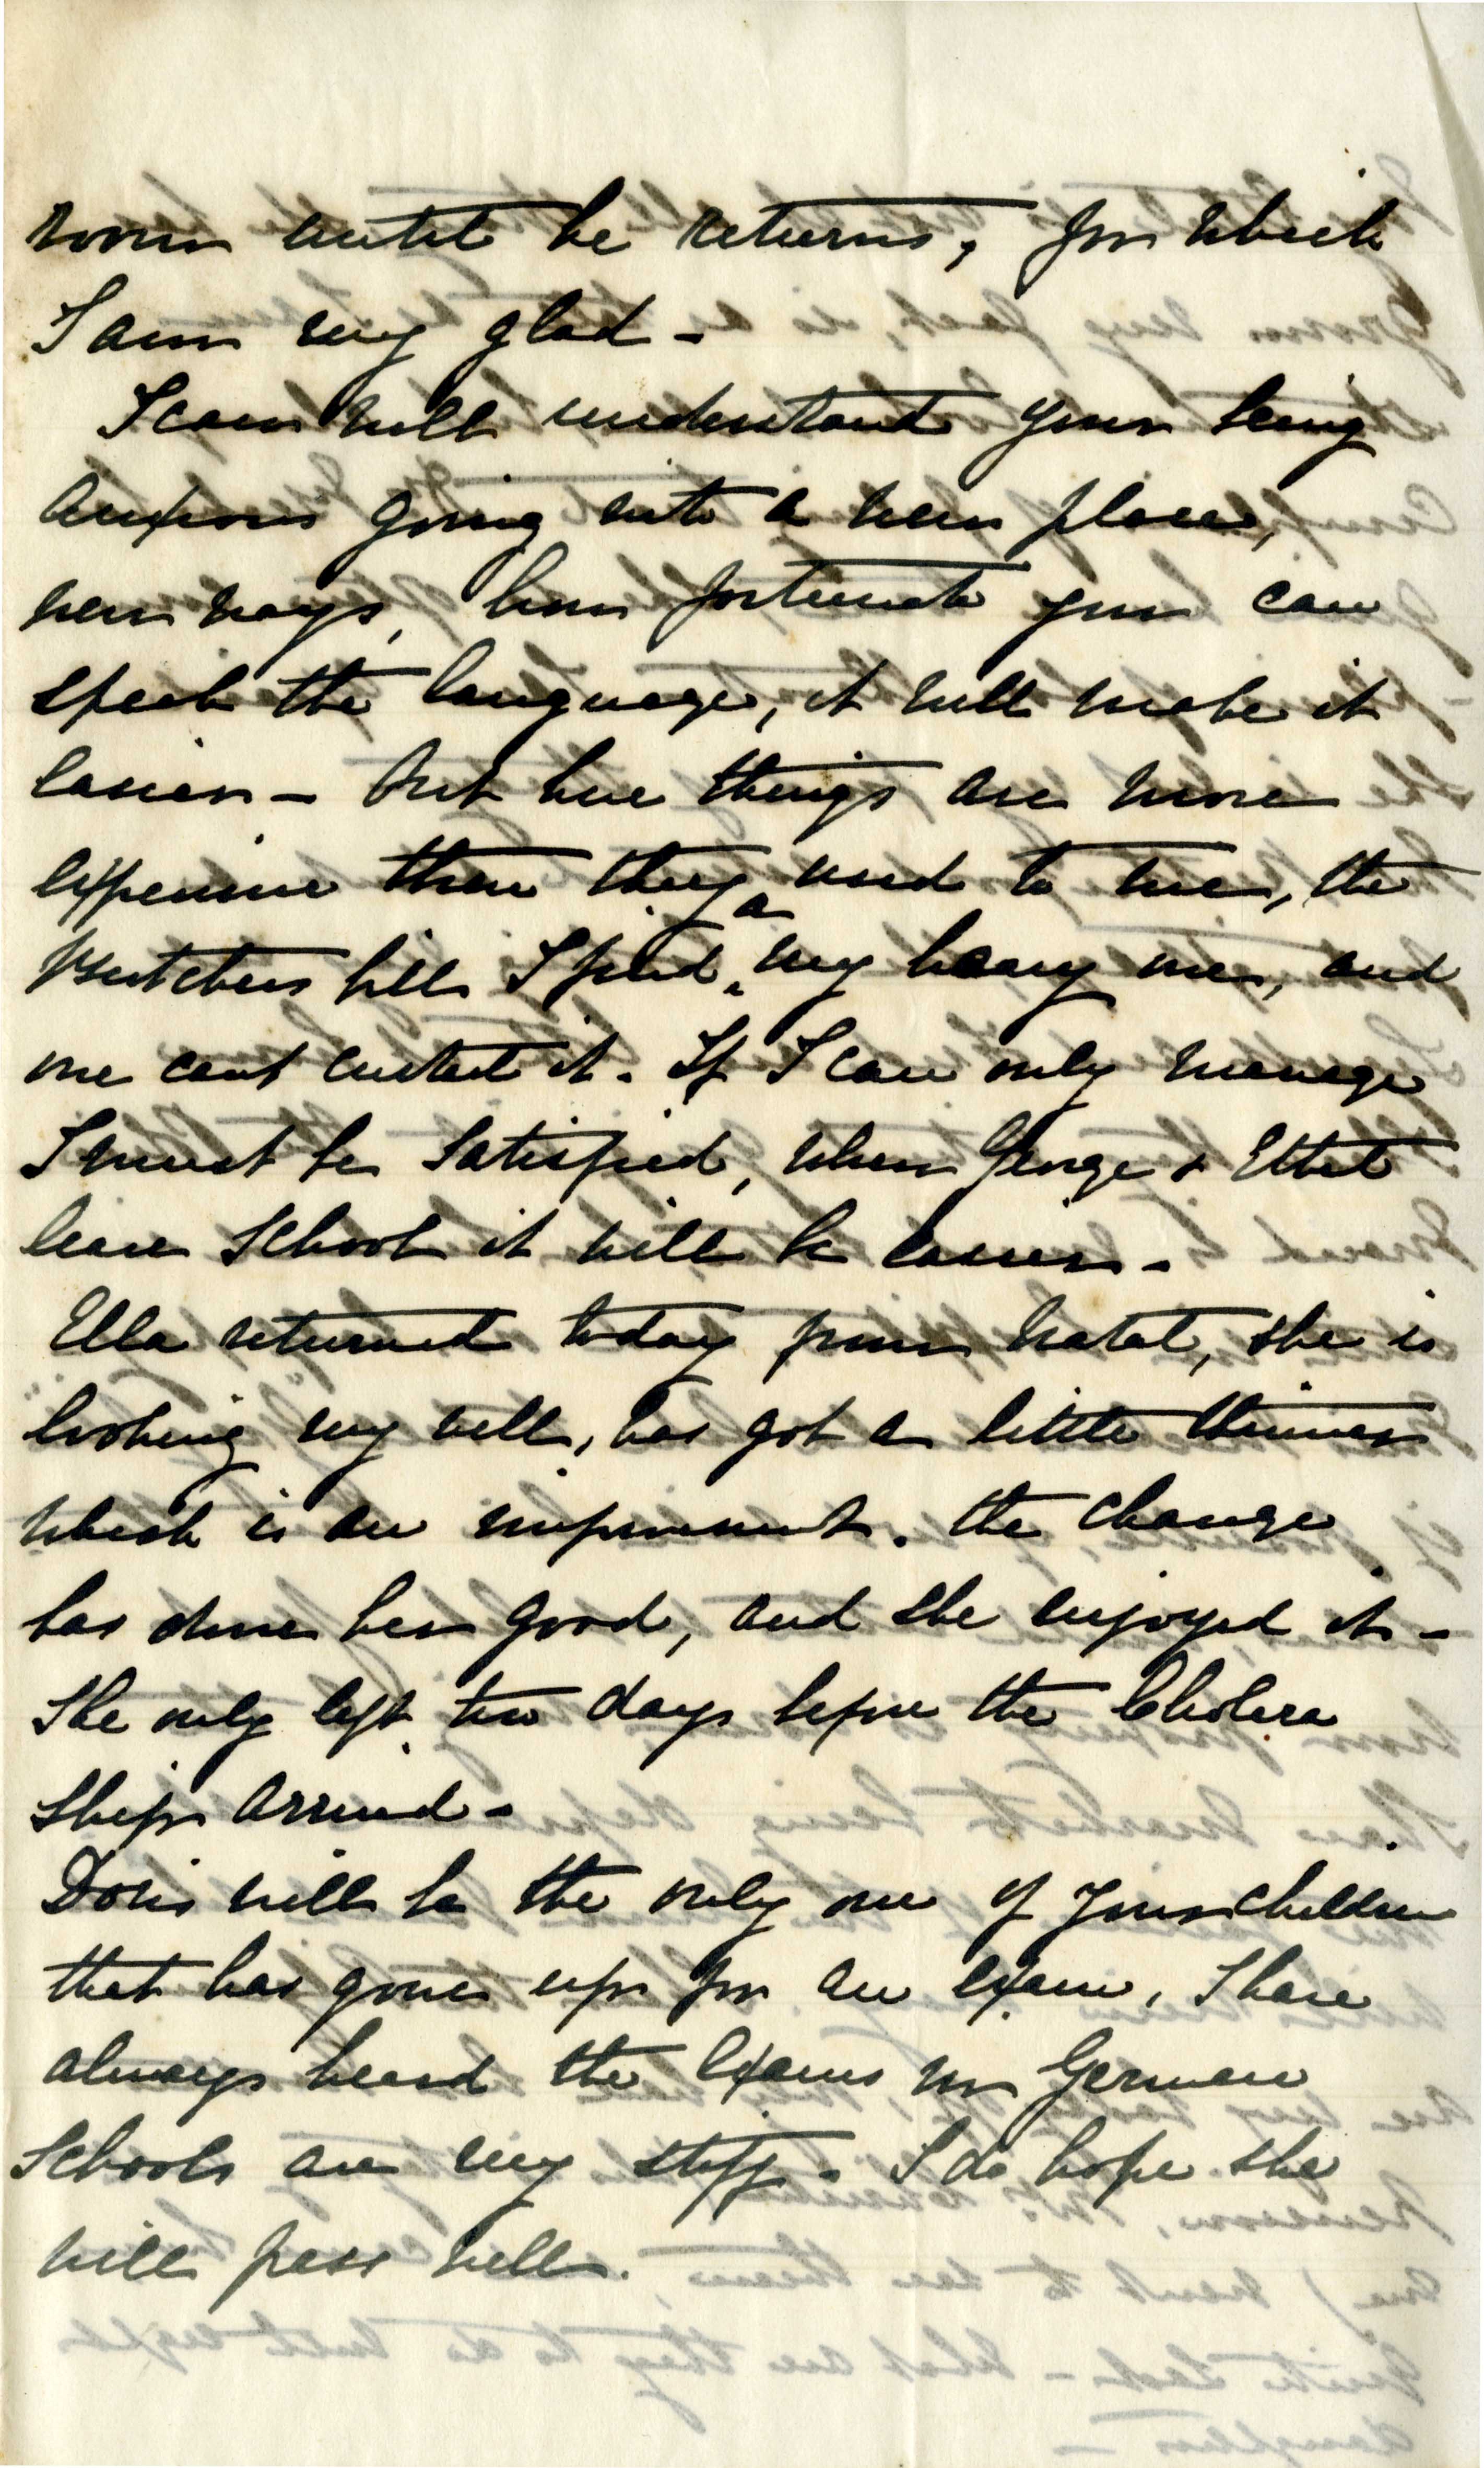 room until he returns, for which
I am very glad -
I can well understand your being
anxious going into a new place,
new ways, how fortunate you can
speak the language, it will make it
easier - But here things are more
expensive than they used to be, the
Butchers bill I find a very heavy one, and
one cant curtail it. If I can only manage
I must be satisfied, when George & Ethel
leave school it will be easier -
Ella returned today from Natal, she is
looking very well, has got a little thinner
which is an improvement. the change
has done her good, and she enjoyed it -
She only left two days before the Cholera
ship arrived -
Doris will be the only one of your children
that has gone up for an exam, I have
always heard the exams in German
Schools are very stiff - I do hope she
will pass well.